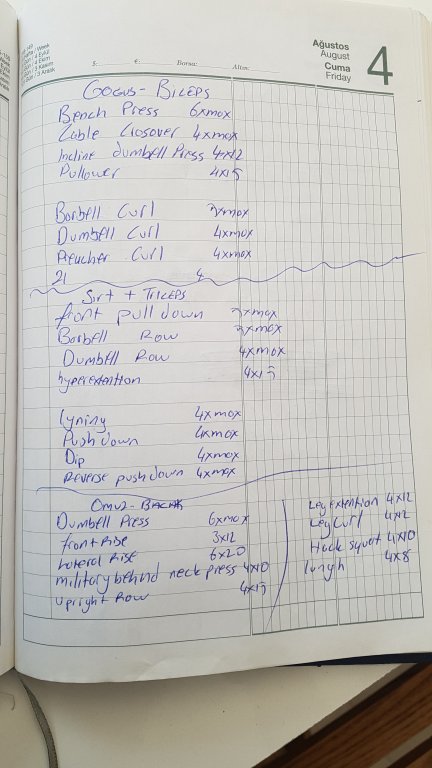 Ağustos
August
Cuma
Friday
4
S: €: Borsa: Altın:
GOGUS - BICEPS
Bench Press 6xmax
Cable Crosover 4xmax
Incline dumbell Press 4x12
Pullower 4x15
Barbell Curl 3xmax
Dumbell Curl 4xmax
Preucher Curl 4xmax
21 4
Sırt + TRICEPS
front pull down 3xmax
Barbell Row 3xmax
Dumbell Row 4xmax
hyperextention 4x15
lyning 4xmax
Push down 4xmax
Dip 4xmax
Reverse push down 4xmax
Omuz - Bacak
Dumbell Press 6xmax
front Rise 3x12
Lateral Rise 6x20
military behind neck press 4x10
upright Row 4x15
Leg extention 4x12
Leg Curl 4x12
Hack squat 4x10
lungh 4x8